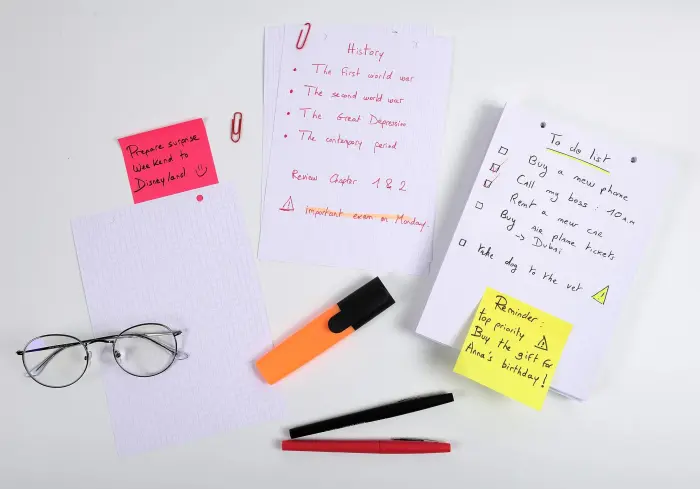 Prepare surprise
weekend to
Disneyland
History
The first world war
The second world war
The Great Depression
The contempary period
Review Chapter 1 & 2
important exam on Monday.
To do list
Buy a new phone
Call my boss : 10 am
Rent a new car
Buy air plane tickets
-> Dubai
take dog to the vet
Reminder :
top priority
Buy the gift for
Anna's birthday !